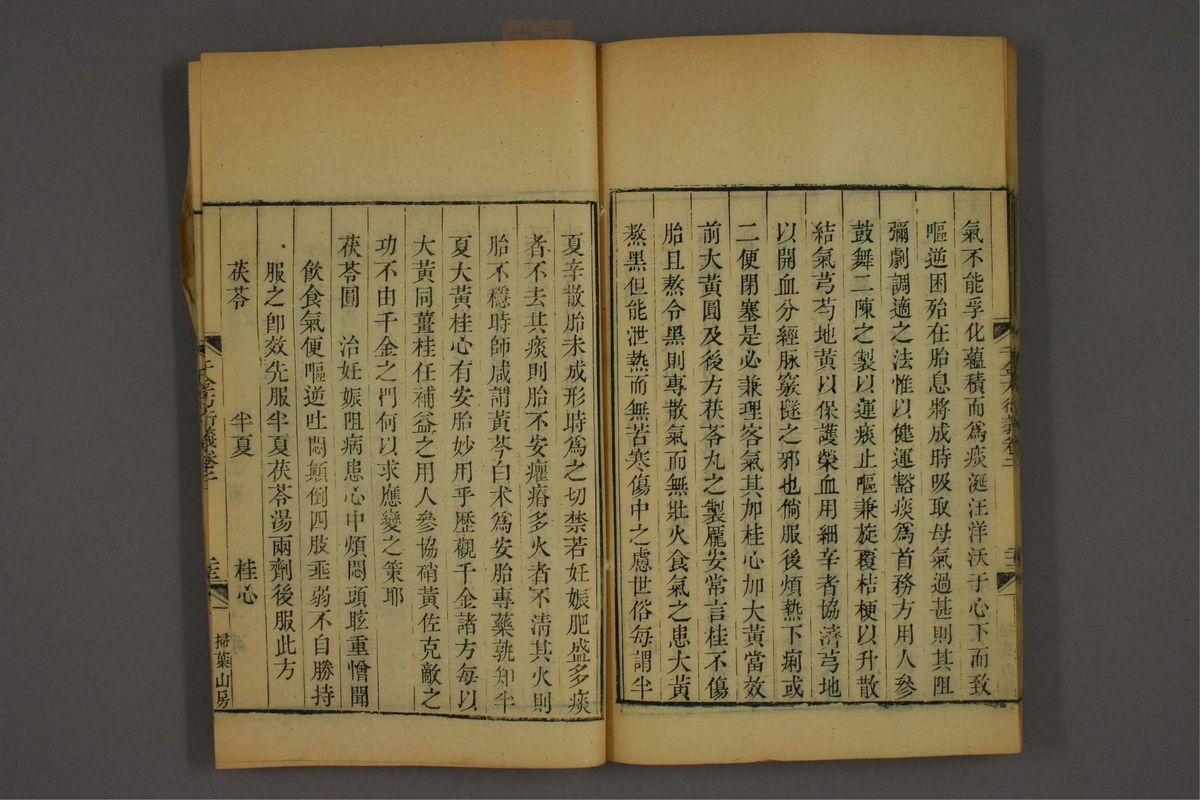 氣不能孚化蘊積而爲痰涎汪洋沃于心下而致
嘔逆困殆在胎息將成時吸取母氣過甚則其阻
彌劇調適之法惟以健運豁痰爲首務方用人參
鼓舞二陳之製以運痰止嘔兼旋覆桔梗以升散
結氣芎芍地黃以保護榮血用細辛者協濟芎地
以開血分經脉竅髓之邪也倘服後煩熱下痢或
二便閉塞是必兼理客氣其加桂心加大黃當效
前大黃圓及後方茯苓丸之製龐安常言桂不傷
胎且熬令黑則專散氣而無壯火食氣之患大黃
熬黑但能泄熱而無苦寒傷中之慮世俗每謂半
夏辛散胎未成形時爲之切禁若妊娠肥盛多痰
者不去其痰則胎不安癯瘠多火者不淸其火則
胎不穩時師咸謂黃芩白术爲安胎專藥孰知半
夏大黃桂心有安胎妙用乎歷觀千金諸方每以
大黃同薑桂任補益之用人參協硝黃佐克敵之
功不由千金之門何以求應變之策耶
茯苓圓 治妊娠阻病患心中煩悶頭眩重憎聞
飲食氣便嘔逆吐悶顛倒四肢垂弱不自勝持
服之卽效先服半夏茯苓湯兩劑後服此方
茯苓 半夏 桂心
千金方衍義卷二
掃葉山房